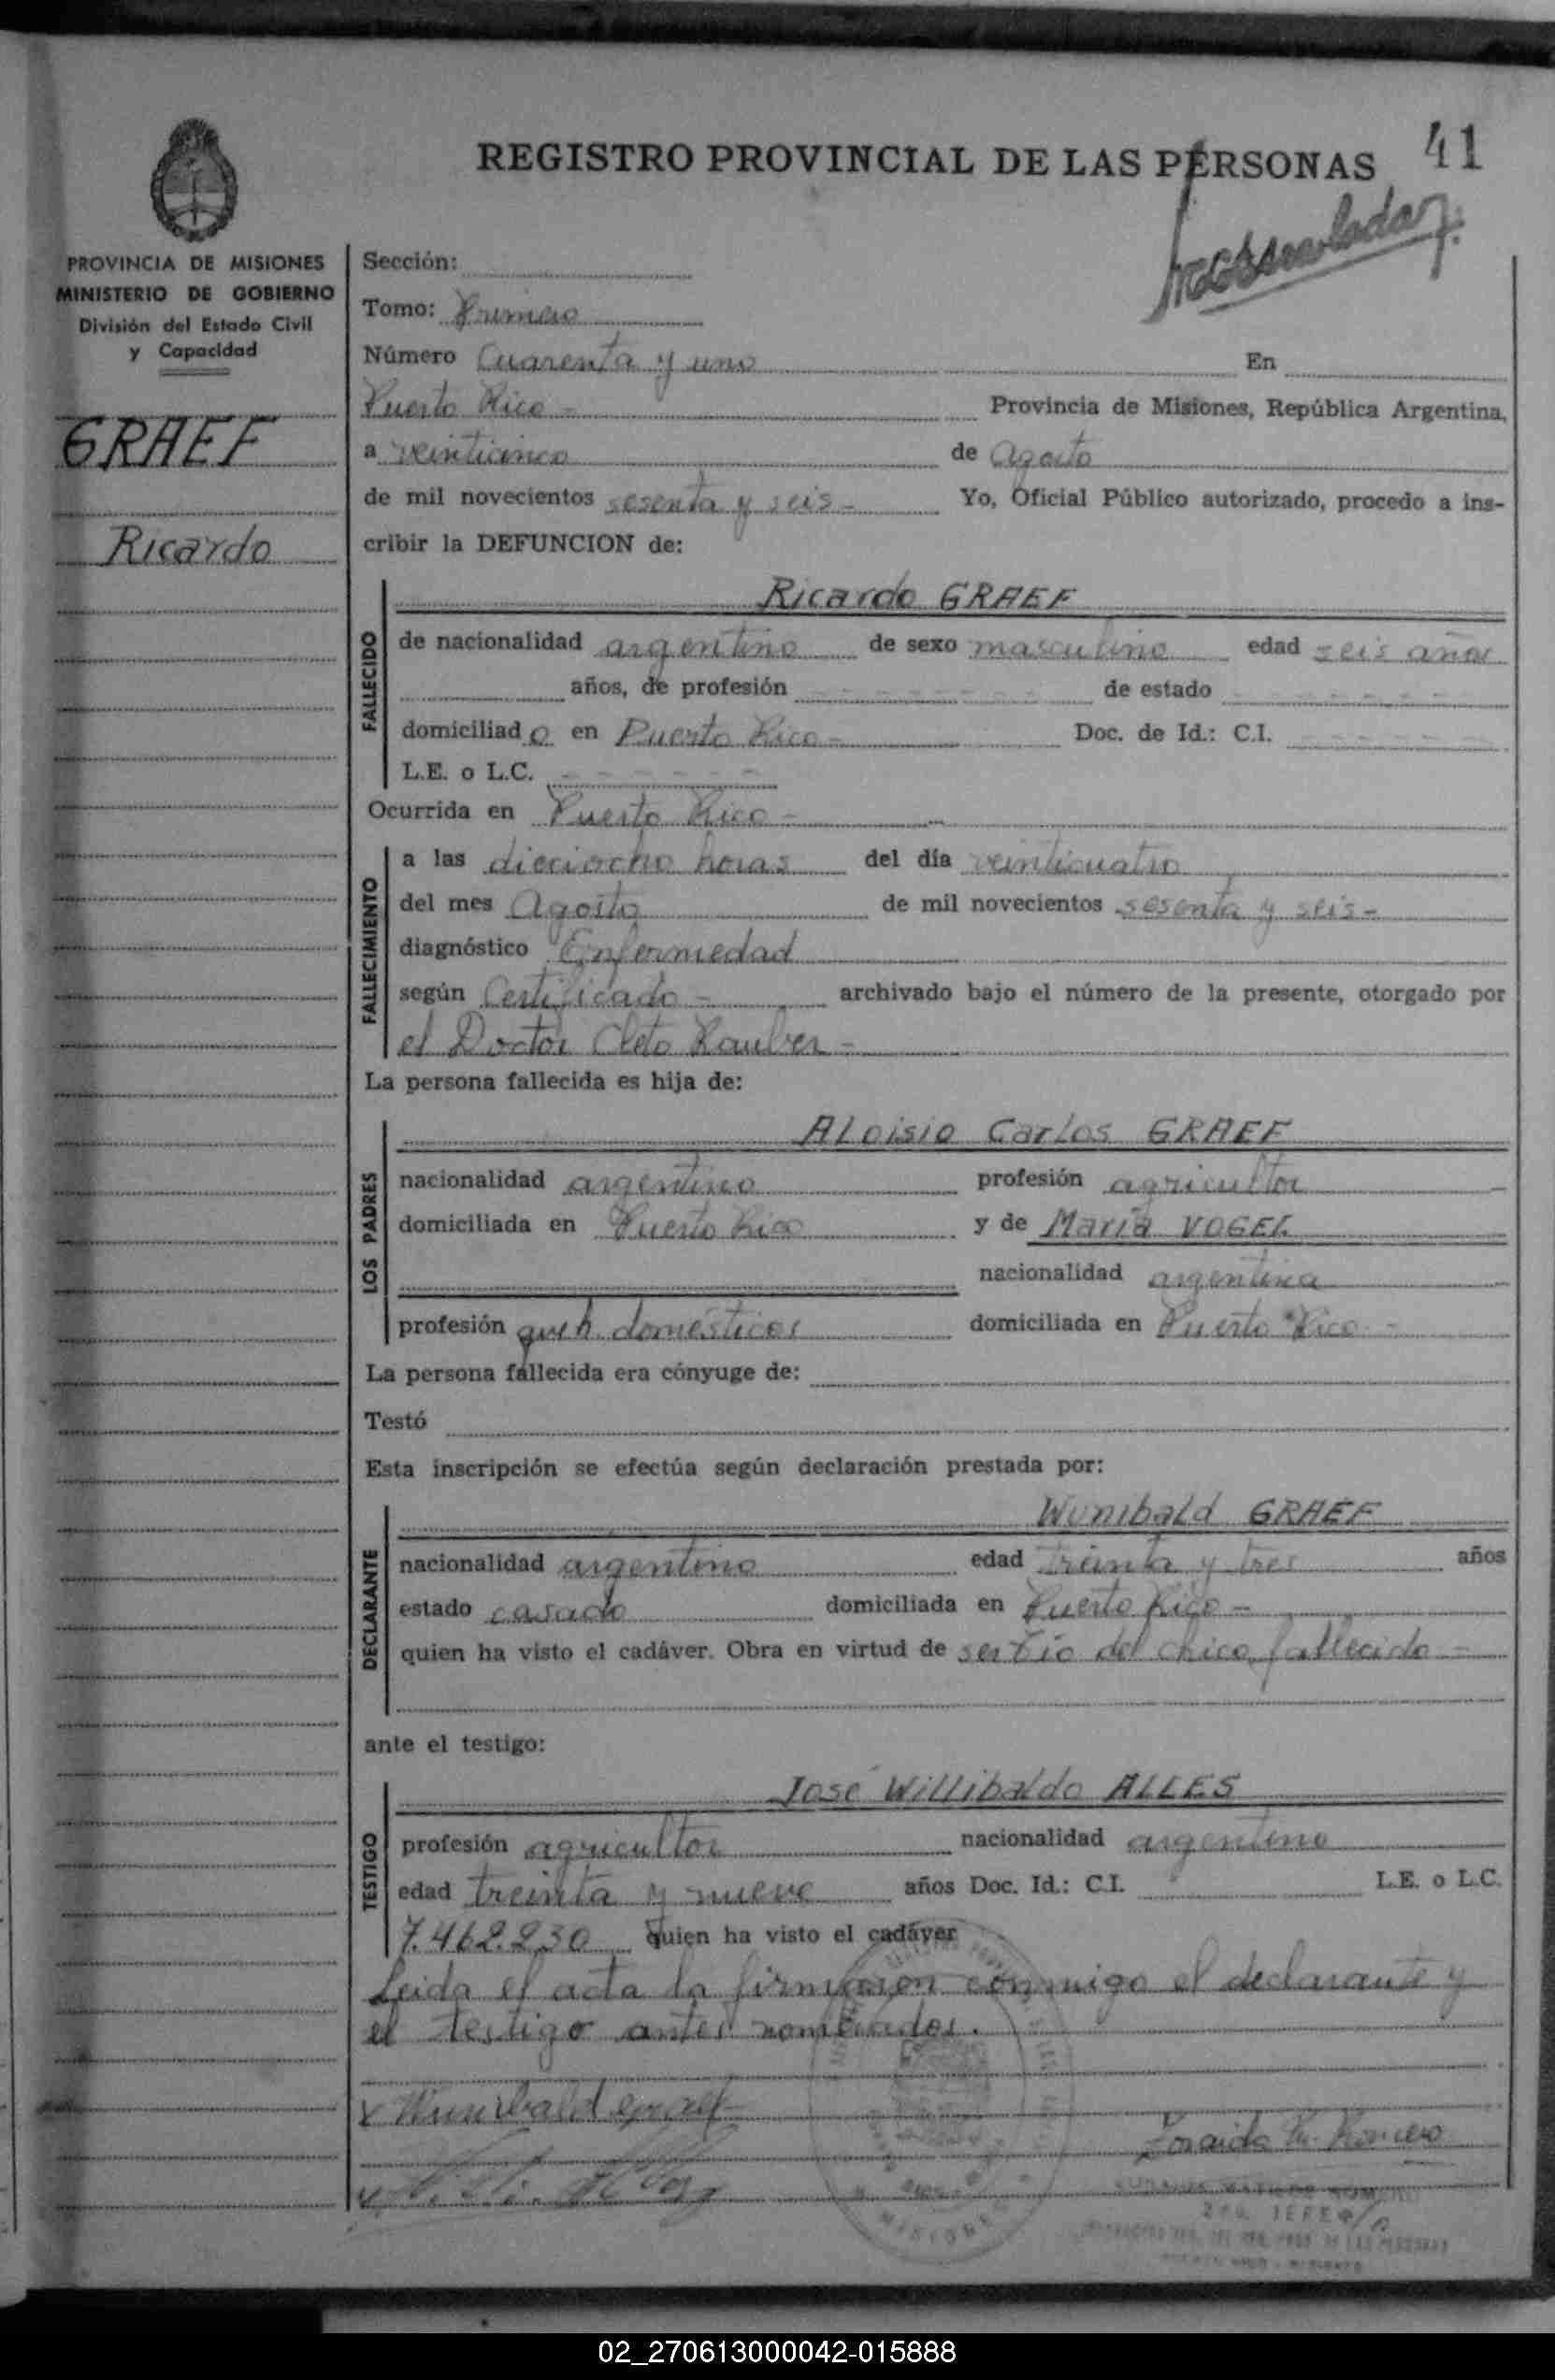 REGISTRO PROVINCIAL DE LAS PERSONAS
41
PROVINCIA DE MISIONES
MINISTERIO DE GOBIERNO
División del Estado Civil
y Capacidad
GRAEF
Ricardo
Sección:
Tomo: Primero
Número Cuarenta y uno En
Puerto Rico - Provincia de Misiones, República Argentina,
a veinticinco de Agosto
de mil novecientos sesenta y seis - Yo, Oficial Público autorizado, procedo a ins-
cribir la DEFUNCION de:
Ricardo GRAEF
FALLECIDO
de nacionalidad argentino de sexo masculino edad seis años
años, de profesión - - - - - - de estado - - - - - -
domiciliado en Puerto Rico - Doc. de Id.: C.I. - - - - - -
L.E. o L.C. - - - - - -
Ocurrida en Puerto Rico -
FALLECIMIENTO
a las dieciocho horas del día veinticuatro
del mes Agosto de mil novecientos sesenta y seis -
diagnóstico Enfermedad
según Certificado - archivado bajo el número de la presente, otorgado por
el Doctor Cleto Rauber -
La persona fallecida es hija de:
LOS PADRES
Aloisio Carlos GRAEF
nacionalidad argentino profesión agricultor
domiciliada en Puerto Rico y de María VOGEL
nacionalidad argentina
profesión queh. domésticos domiciliada en Puerto Rico -
La persona fallecida era cónyuge de:
Testó
Esta inscripción se efectúa según declaración prestada por:
DECLARANTE
Wunibald GRAEF
nacionalidad argentino edad treinta y tres años
estado casado domiciliada en Puerto Rico -
quien ha visto el cadáver. Obra en virtud de ser tío del chico fallecido -
ante el testigo:
TESTIGO
José Willibaldo ALLES
profesión agricultor nacionalidad argentino
edad treinta y nueve años Doc. Id.: C.I. L.E. o L.C.
7.462.230 quien ha visto el cadáver
Leida el acta la firmaron conmigo el declarante y
el testigo antes nombrados.
x Wunibald graef
MISIONES
02_270613000042-015888